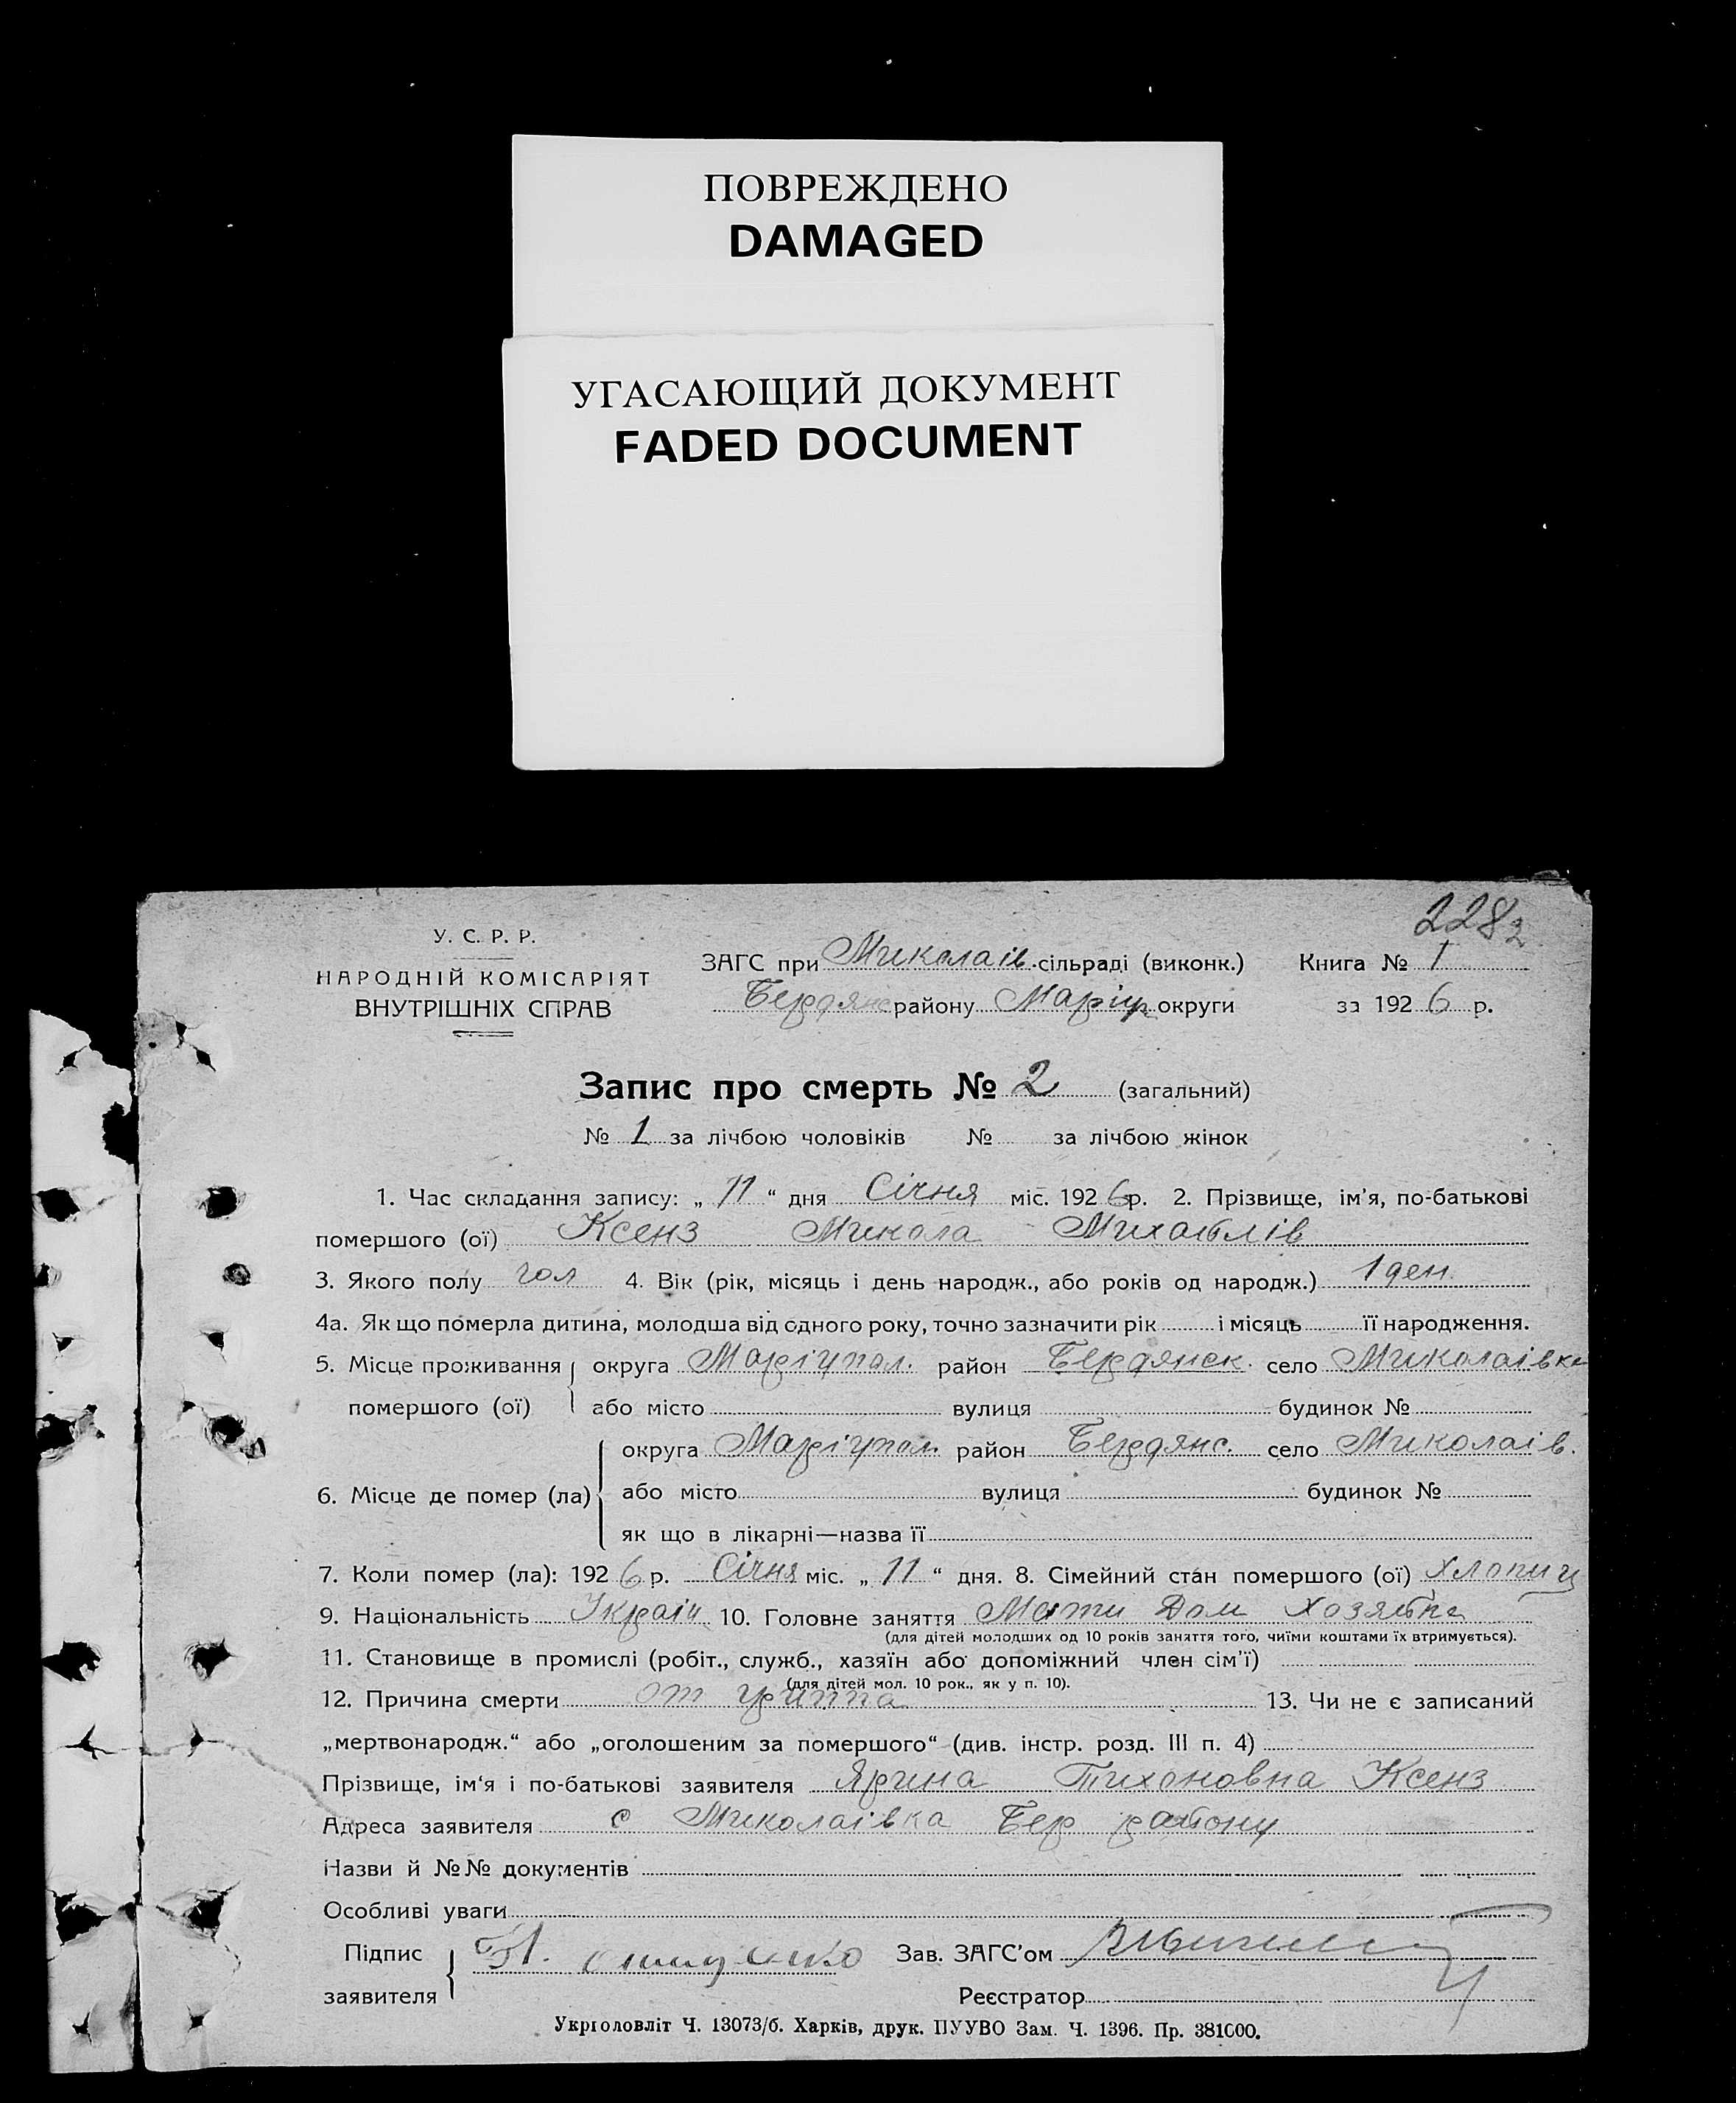 ПОВРЕЖДЕНО
DAMAGED
УГАСАЮЩИЙ ДОКУМЕНТ
FADED DOCUMENT
228
У. С. Р. Р.
НАРОДНІЙ КОМІСАРІЯТ
ВНУТРІШНІХ СПРАВ
ЗАГС при Миколаів. сільраді (виконк.) Книга № 1
Бердянс району Маріуп округи за 1926 р.
Запис про смерть № 2 (загальний)
№ 1 за лічбою чоловіків № за лічбою жінок
1. Час складання запису: „ 11 “ дня Січня міс. 1926 р. 2. Прізвище, ім’я, по-батькові
помершого (ої) Ксенз Микола Михайлів
3. Якого полу чол 4. Вік (рік, місяць і день народж., або років од народж.) 1 ден.
4а. Як що померла дитина, молодша від одного року, точно зазначити рік і місяць її народження.
5. Місце проживання округа Маріупол. район Бердянск. село Миколаівка
помершого (ої) або місто вулиця будинок №
округа Маріупол район Бердянс. село Миколаів.
6. Місце де помер (ла) або місто вулиця будинок №
як що в лікарні—назва її
7. Коли помер (ла): 1926 р. Січня міс. „ 11 “ дня. 8. Сімейний стан помершого (ої) хлопиц
9. Національність Украін 10. Головне заняття Мати Дом Хозяйка
(для дітей молодших од 10 років заняття того, чиїми коштами їх втримується).
11. Становище в промислі (робіт., служб., хазяїн або допоміжний член сім’ї)
(для дітей мол. 10 рок., як у п. 10).
12. Причина смерти от гриппа 13. Чи не є записаний
„мертвонародж.“ або „оголошеним за помершого“ (див. інстр. розд. III п. 4)
Прізвище, ім‘я і по-батькові заявителя Ярина Тихоновна Ксенз
Адреса заявителя с Миколаівка Бер району
Назви й №№ документів
Особливі уваги
Підпис Зав. ЗАГС’ом
заявителя Реєстратор
Укрголовліт Ч. 13073/б. Харків, друк. ПУУВО Зам. Ч. 1396. Пр. 381000.